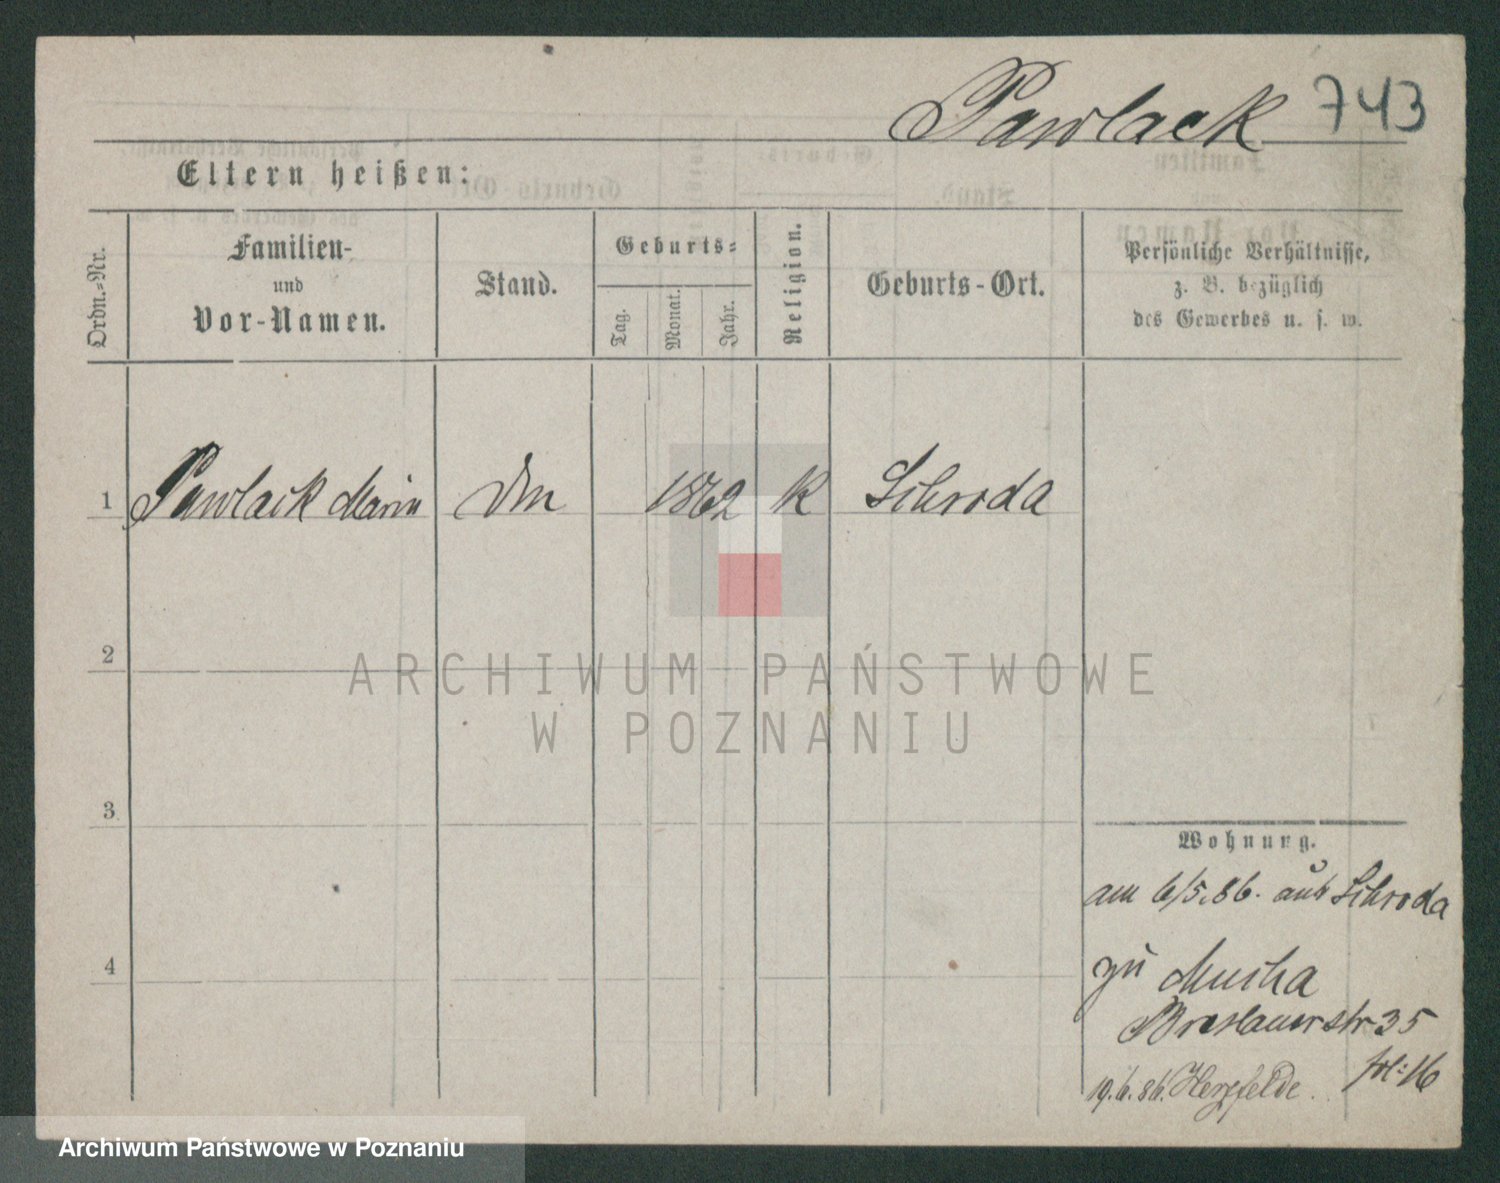 Pawlack 743
Eltern heißen:
Ordn.=Nr.
Familien-
und
Vor-Namen.
Stand.
Geburts=
Tag.
Monat.
Jahr.
Religion.
Geburts-Ort.
Persönliche Verhältnisse,
z. B. bezüglich
des Gewerbes u. s. w.
1 Pawlack Maria 1862 K Schroda
2
3
4
Wohnung.
am 6/5.86. aus Schroda
zu Mucha
Breslauerstr 35
fol: 16
19.6.86. Herzfelde.
ARCHIWUM PAŃSTWOWE
W POZNANIU
Archiwum Państwowe w Poznaniu